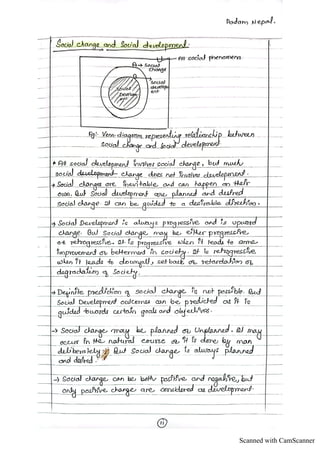 Padam Nepal.
Social change and Social development:
All social phenomena
A → Social
Change
Social
develop
ent
Social
Develop
ment
Fig: Venn-diagram representing relationship between
social change and social development
* All social development involves social change, but much
social development change does not involve development.
→ Social changes are inevitable and can happen on their
own. But Social development are planned and desired
social change. It can be guided to a desirable direction.
→ Social Development is always progressive and is upward
change. But Social change may be either progressive
or retrogressive. It is progressive when it leads to some
improvement or betterment in society. It is retrogressive
when it leads to downfall, set back or retardation or
degradation of Society.
→ Definite prediction of social change is not possible. But
Social Development outcomes can be predicted as it is
guided towards certain goals and objectives.
→ Social change may be planned or Unplanned. It may
occur in the natural course or it is done by man
deliberately. But Social change is always planned
and desired.
→ Social change can be both positive and negative, but
only positive change are considered as development.
11
Scanned with CamScanner